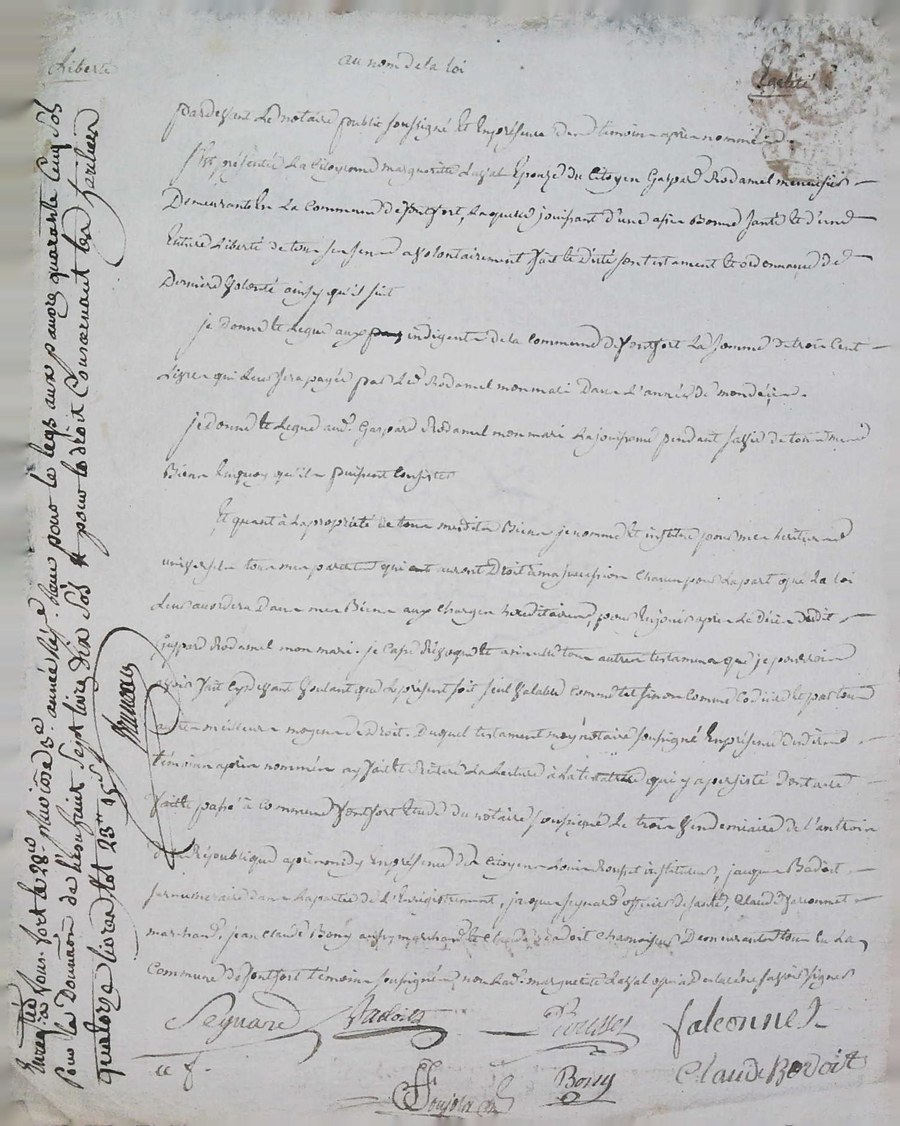 Liberté
au nom de la loi
Egalité
pardevant Le notaire public soussigné et En présence des témoins après nommés
S'est présentée La Citoyenne marguerite Épouze du Citoyen Gaspard Rodamel menuisier
Demeurant En La Commune de fontfort, Laquelle jouissant d'une assés Bonne santé et d'une
Entiere Liberté de tous ses sens a volontairement fait et dicté son testament et ordonnance de
Derniere volonté ainsy qu'il suit
je donne et Legue aux indigents de la commune de fontfort La somme de trois Cent
Livres qui Leur sera payée par Led. Rodamel mon mari Dans L'année de mon décés.
je donne et Legue aud. Gaspard Rodamel mon mari La jouissance pendant sa vie de tous mes
Biens En quoy qu'ils puissent Consister
Et quant à La proprieté de tous mesdits Biens je nomme et institue pour mes heritiers
universels tous mes parents qui auront Droit à ma succession Chacun pour La part que La loi
Leur accordera Dans mes Biens aux charges hereditaires, pour En jouir après Le décès dudit
gaspard Rodamel mon mari. je Casse Révoque et annulle tous autres testaments que je pourrois
avoir fait Cy devant Voulant que Le présent soit seul valable Comme tel sinon Comme Codicile et par tous
autres meilleurs moyens de Droit. Duquel testament moy notaire soussigné En présence desdits
témoins après nommés ay fait et Réitéré La Lecture à la testatrice qui y a persisté Dont acte
fait et passé à Commune fontfort Etude du notaire soussigné Le trois Vendemiaire de l'an trois
de la République après midy En présence des Citoyens Louis Rousset instituteur, jacques Badoit
surnumeraire dans La partie de L'Enregistrement, jacques seynard officier de santé, Claude falconnet
marchand, jean Claude Bony aussy marchand et Claude Badoit Chamoiseur Demeurants tous En La
Commune de fontfort témoins soussignés, non Lad. marguerite qui a Déclaré ne savoir signer
Seynard Badoit Rousset falconnet
Bony Claude Badoit
Enregistré à fonfort le 28 Pluviose 3e année pour le legs aux pauvres quarante cinq sols
Pour la Donation de l'usufruit sept livres dix sols pour le droit Concernant les heritiers
quatorze livres